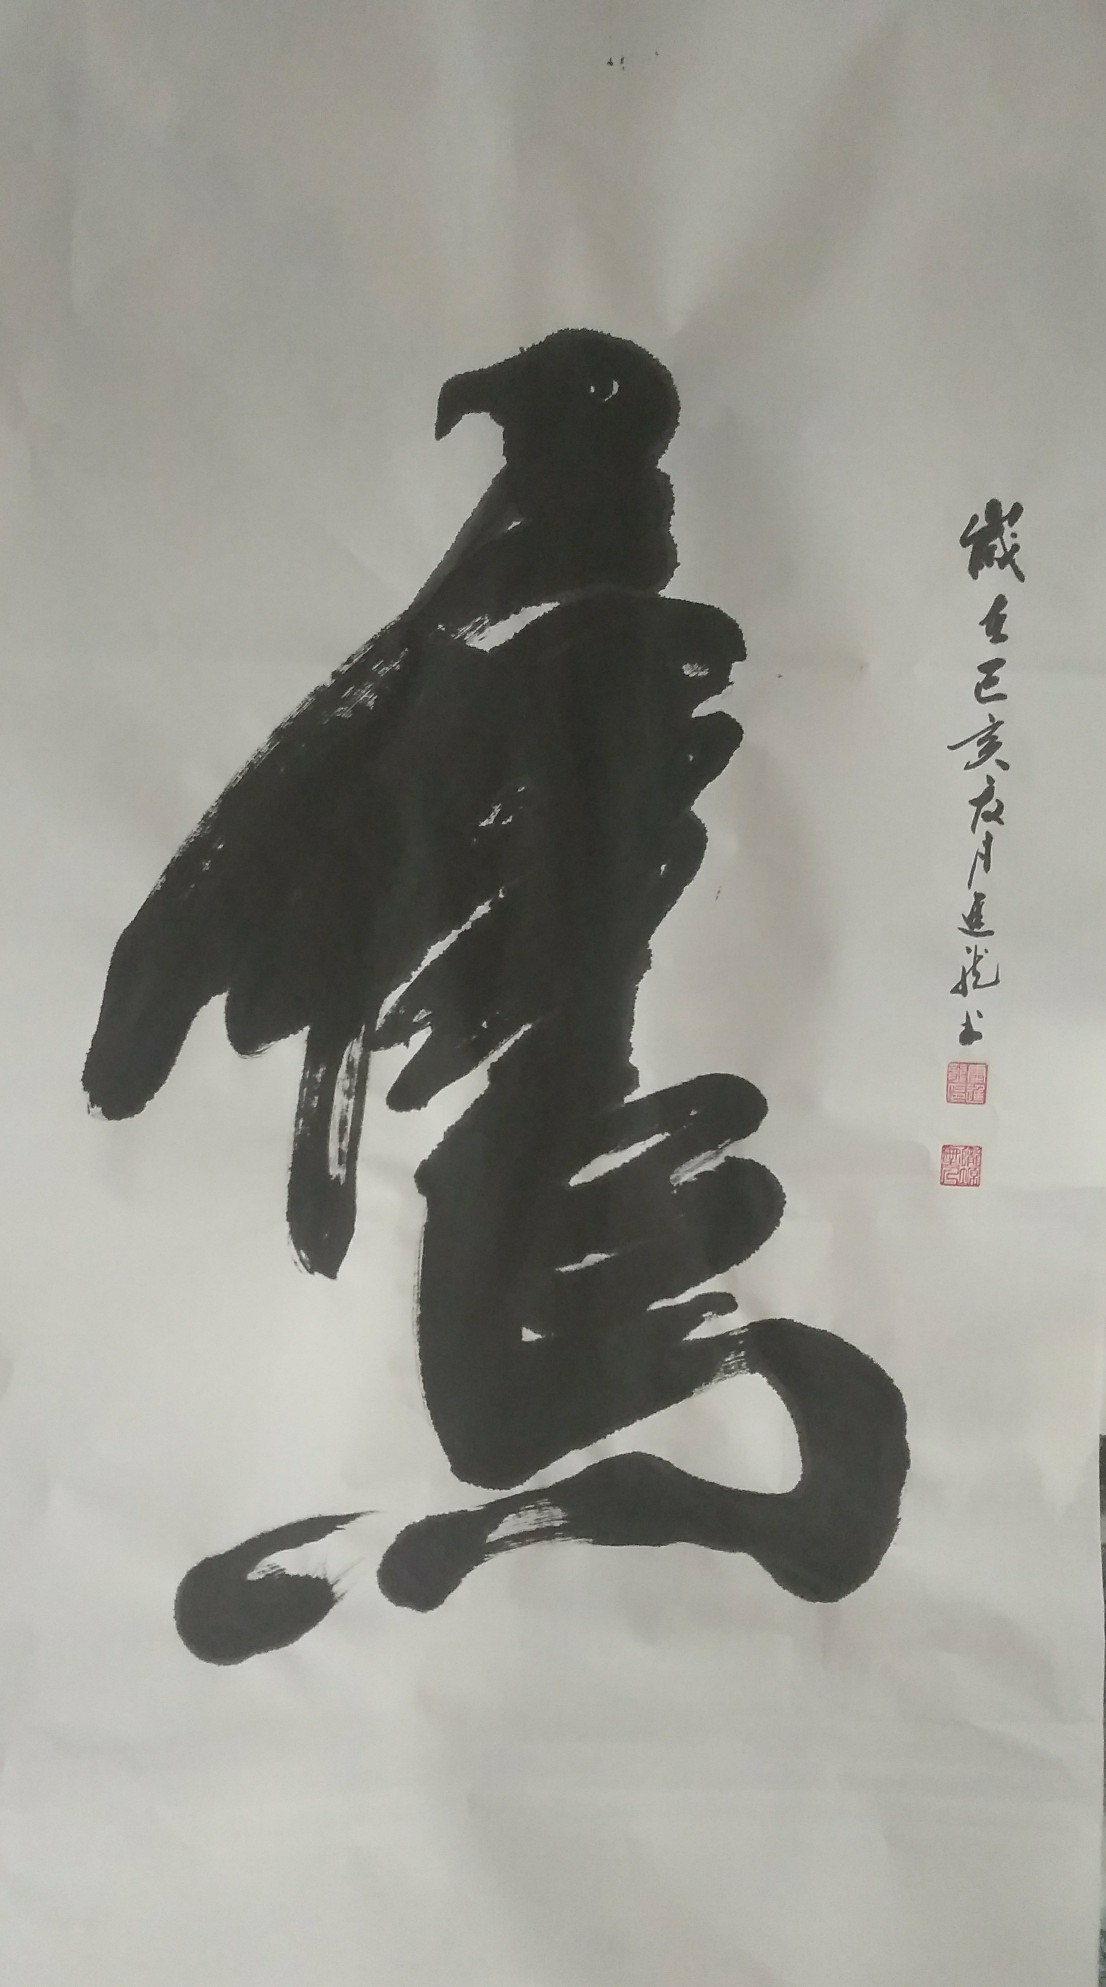 鹰
岁在己亥夏月进龙书